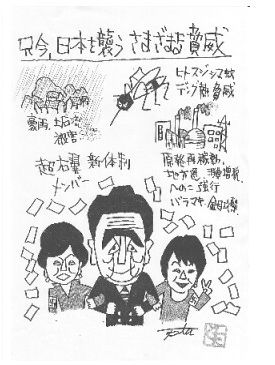 只今、日本を襲うさまざまな脅威
ヒトスジシマ蚊
デング熱脅威
豪雨、土石流
被害
超右翼 新体制
メンバー
原発再稼動、
地方選、消費増税、
へのこ強行
バラマキ